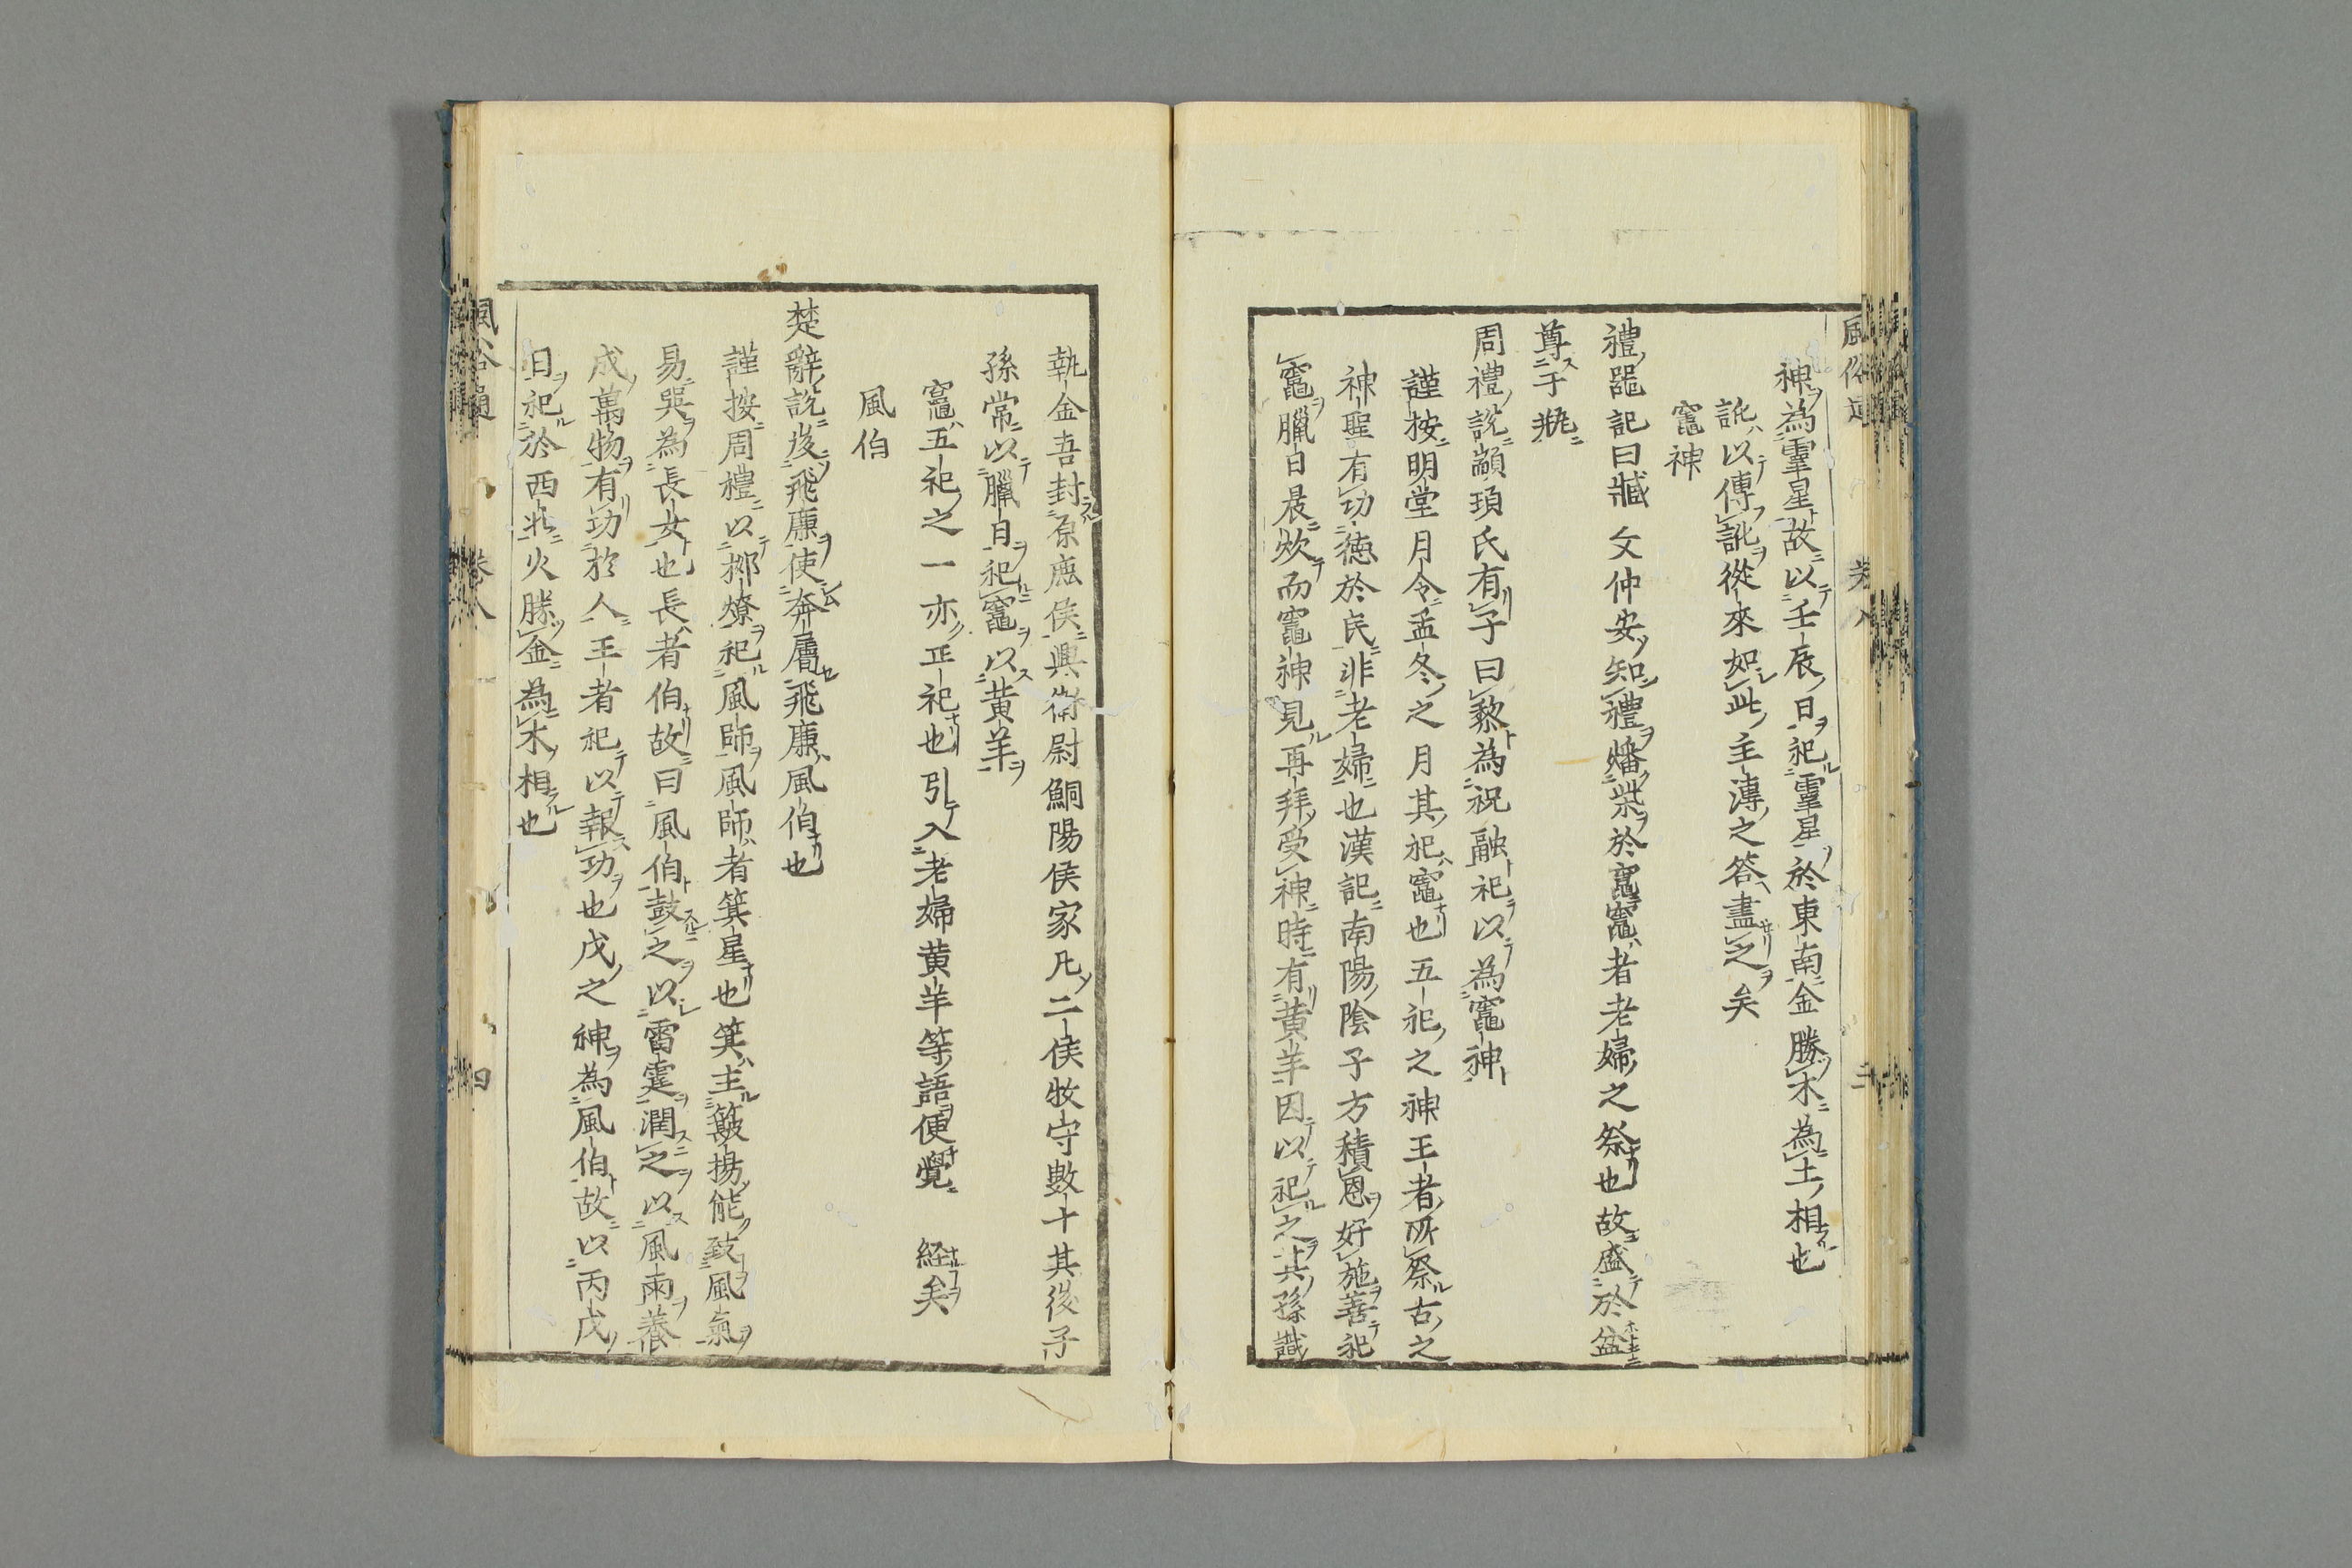 風俗通 卷八 三
神為靈星故以壬辰日祀靈星於東南金勝木為土相也
訛以傳訛從來如此主溥之答盡之矣
竈神
禮器記曰臧文仲安知禮燔柴於竈竈者老婦之祭也故盛於盆
尊于瓶
周禮說顓頊氏有子曰黎為祝融祀以為竈神
謹按明堂月令孟冬之月其祀竈也五祀之神王者所祭古之
神聖有功德於民非老婦也漢記南陽陰子方積恩好施善祀
竈臘日晨炊而竈神見再拜受神時有黃羊因以祀之其孫識
執金吾封原鹿侯興衛尉鮦陽侯家凡二侯牧守數十其後子
孫常以臘日祀竈以黃羊
竈五祀之一亦正祀也引入老婦黃羊等語便覺 経矣
風伯
楚辭說後飛廉使奔屬飛廉風伯也
謹按周禮以槱燎祀風師風師者箕星也箕主簸揚能致風氣
易巽為長女也長者伯故曰風伯鼓之以雷霆潤之以風雨養
成萬物有功於人王者祀以報功也戌之神為風伯故以丙戌
日祀於西北火勝金為木相也
風俗通 卷八 四